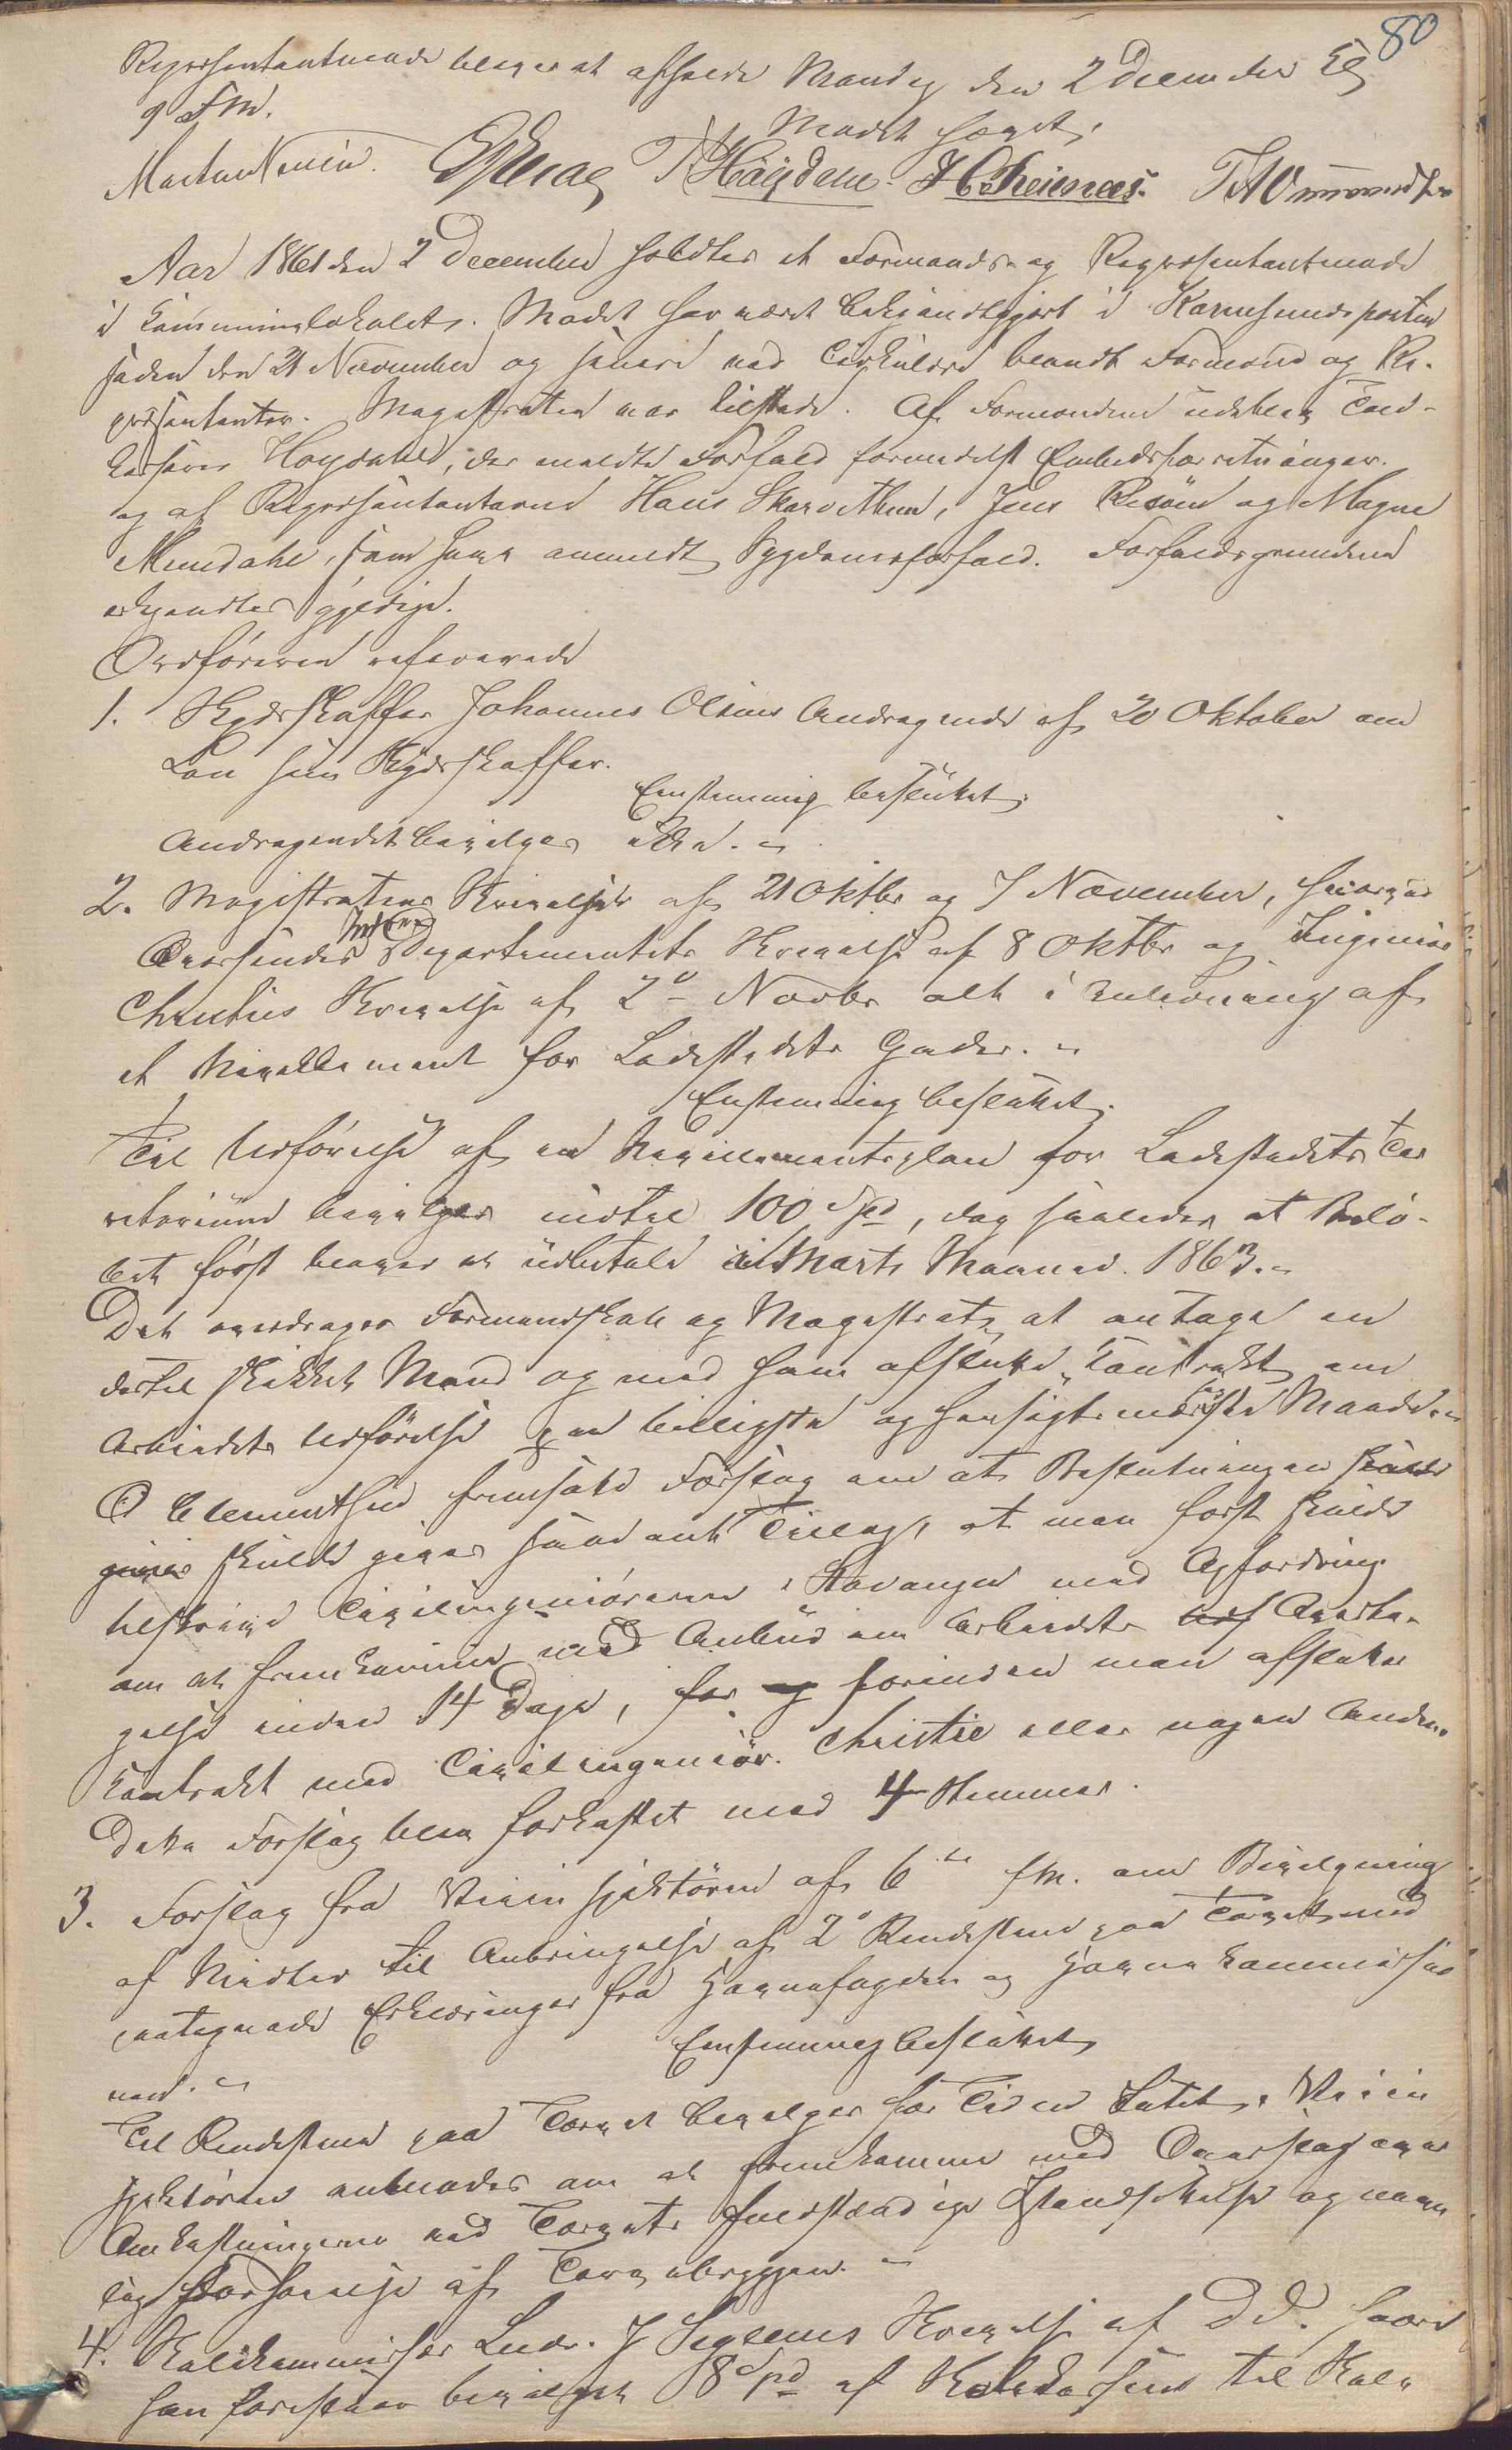 80
Repræsentantmøde bliver at afholde Mandag den 2 December Kl
9 F.M.
Mødet hævet.
Aar 1861 den 2 December holdtes et Formands- og Repræsentantmøde
i Kommunelokalet. Mødet har været bekjendtgjort i Karmsundsposten
siden den 21 November og senere ved Cirkulære blandt Formænd og Re-
præsentanter. Magistraten var tilstede. Af Formændene udeblev Told-
kasserer Høydahl, der meldte Forfald formedelst Embedsforretninger.
og af Repræsentanterne Hans Skar, Jens Risøen og Magne
Mundahl, som have anmeldt Sygdomsforfald. Forfaldsgrundene
erkjendtes gyldige.
Ordføreren refererede
1. Skydsskaffer Johannes Olsens Andragende af 20 Oktober om
Løn som Skydsskaffer.
Enstemmig besluttet,
Andragendet bevilges ikke.
2. Magistratens Skrivelser af 21 Oktbr og 7 November, hvorved
Oversendes Departementets Skrivelse af 8 Oktbr og Ingeniør
Christies Skrivelse af 2 Novbr alt i Anledning af
et Nivellement for Ladestedets Gader.
Enstemmig besluttet.
Til Udførelse af en Nivellementsplan for Ladestedets Ter
ritorium bevilges indtil 100 Spd, dog saaledes at Belø-
bet først bliver at udbetale i Marts Maaned 1863.
Det overdrages Formandskab og Magistrat, at antage en
dertil skikket Mand og med ham afslutte Contrakt om
Arbeidets Udførelse paa billigste og hensigtsmæssigste Maade.
O Clementsen fremsatte Forslag om at Beslutningen
skulde gives saadant Tillæg, at man først skulde
tilskrive Civilingeniørerne i Stavanger med Opfordring
om at fremkomme med Anbud om Arbeidets Overta-
gelse inden 14 Dage, før forinden man afslutter
Contrakt med Civilingeniør Christie eller nogen Anden.
Dette Forslag blev forkastet med 4 Stemmer.
3. Forslag fra Veiinspektøren af 6te f.M. om Bevilgning
af Midler til Anbringelse af 2 Rendestene paa Torvet med
paategnede Erklæringer fra Havnefogden og Havnekommissio
nen.
Enstemmig besluttet,
Til Rendestene paa Torvet bevilges for Tiden Intet. Veiin
spektøren anmodes om at fremkomme med Overslag over
Omkostningerne ved Torvets fuldstændige Istandsættelse og navn
lig Forhøielse af Torvebryggen.
4. Skolekommissær Ludv. J Seglems Skrivelse af D.D. hvori
han foreslaar bevilget 8 Spd af Skolekassen til Skole